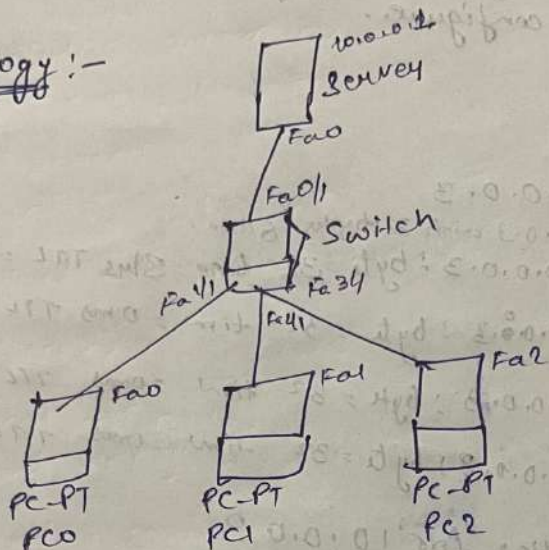 ogy :-
10.0.0.1
Server
Fa0
Fa0/1
Switch
Fa1/1
Fa34
Fa41
Fa0
Fa1
Fa2
PC-PT
PC0
PC-PT
PC1
PC-PT
PC2